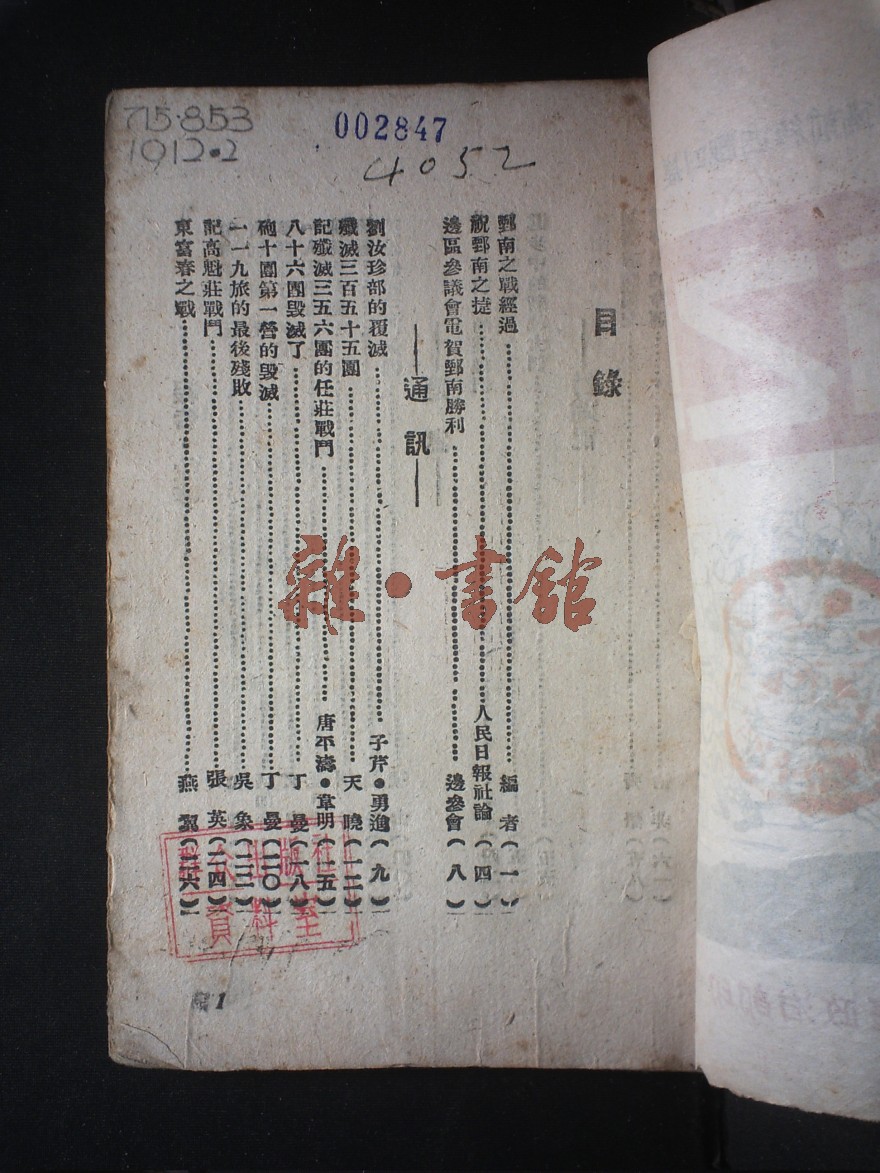 715.853
1912.2
002847
4052
目錄
鄄南之戰經過 編者(一)
祝鄄南之捷 人民日報社論(四)
邊區參議會電賀鄄南勝利 邊參會(八)
—通訊—
劉汝珍部的覆滅 子芹•勇進(九)
殲滅三百五十五團 天曉(一二)
記殲滅三五六團的任莊戰鬥 唐平濤•韋明(一五)
八十六團毀滅了 丁曼(一八)
砲十團第一營的毀滅 丁曼(二〇)
一一九旅的最後殘敗 吳象(二二)
記高魁莊戰鬥 張英(二四)
東富春之戰 燕(二六)
1
資料室
雜•書館
政治部